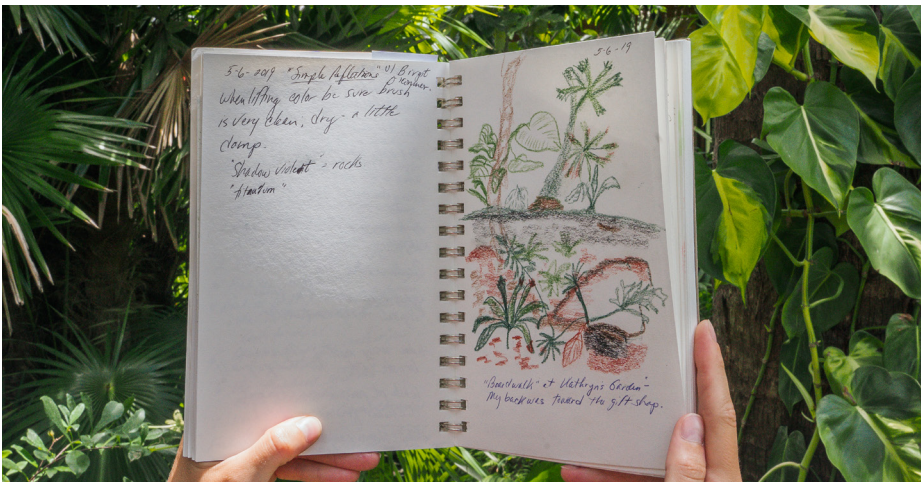 5-6-2019 "Simple Reflections" w/ Birgit
O'Connor.
when lifting color be sure brush
is very clean, dry - a little
damp.
"Shadow violet" - rocks
5-6-19
"Boardwalk" at Kathryn's Garden -
My back was toward the gift shop.